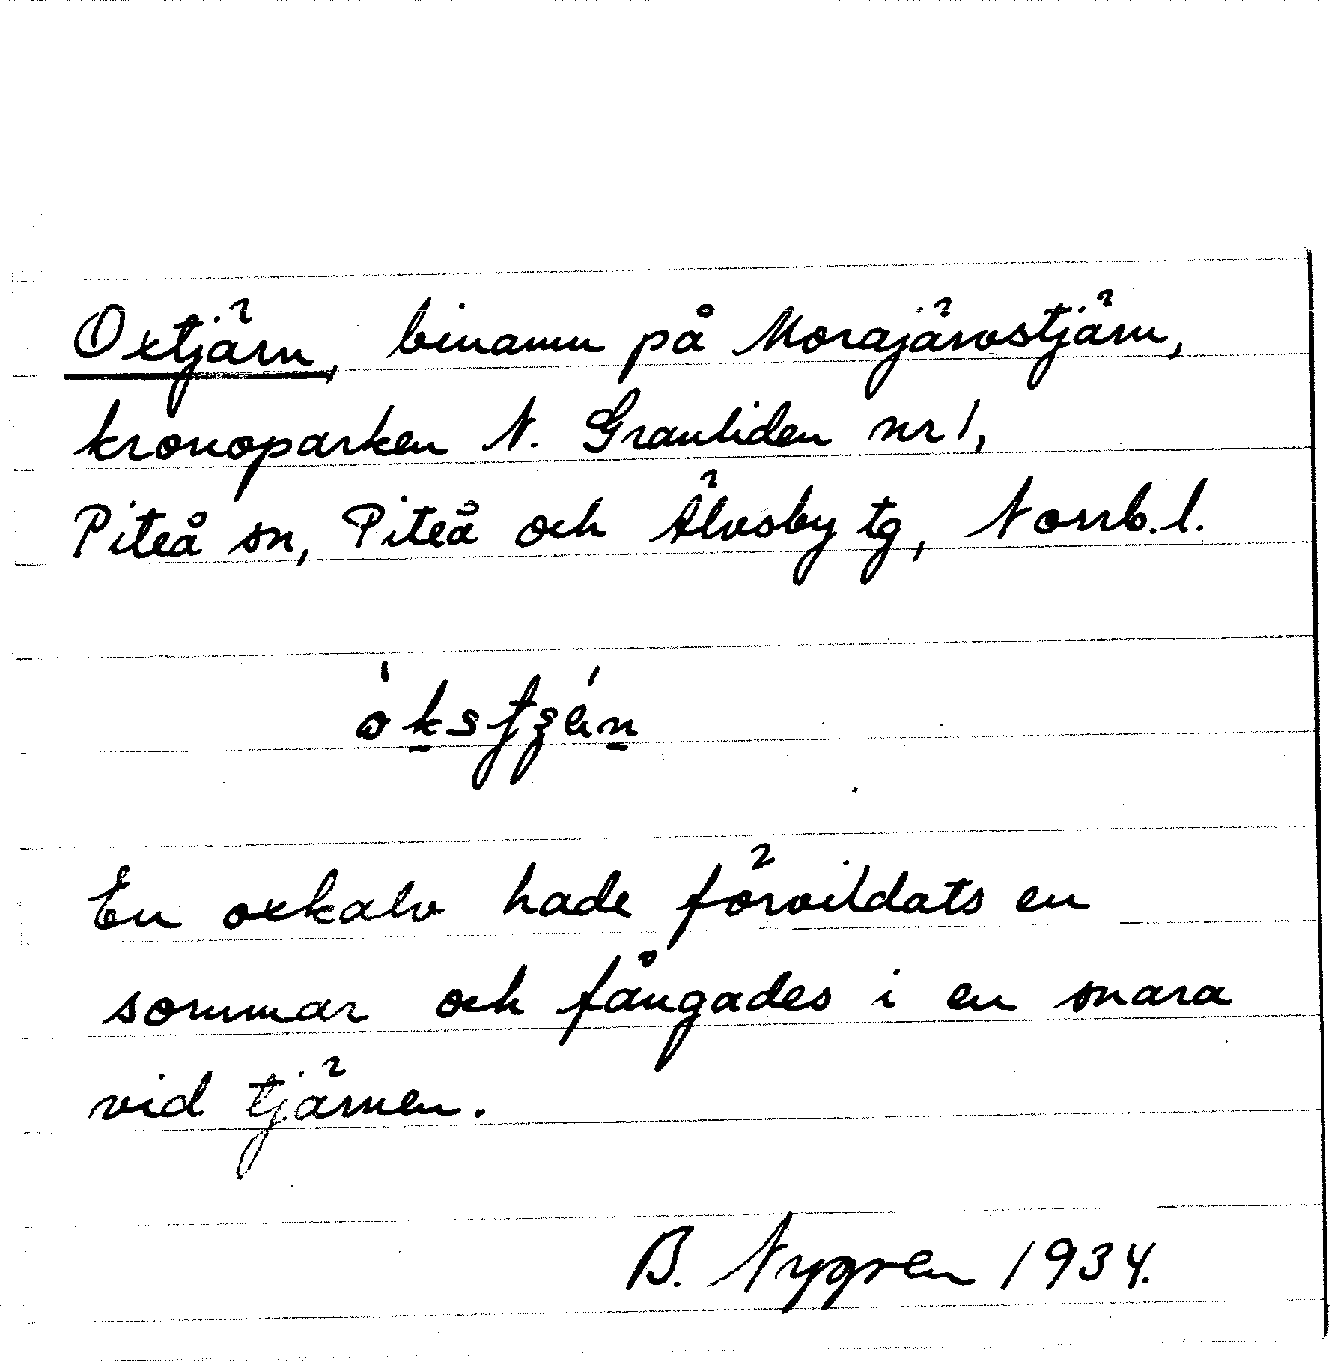 Oxtjärn, binamn på Morajärvstjärn,
kronoparken N. Granliden nr 1,
Piteå sn, Piteå och Älvsby tg, Norrb. l.
En oxkalv hade förvildats en
sommar och fångades i en snara
vid tjärnen.
B. Nygren 1934.